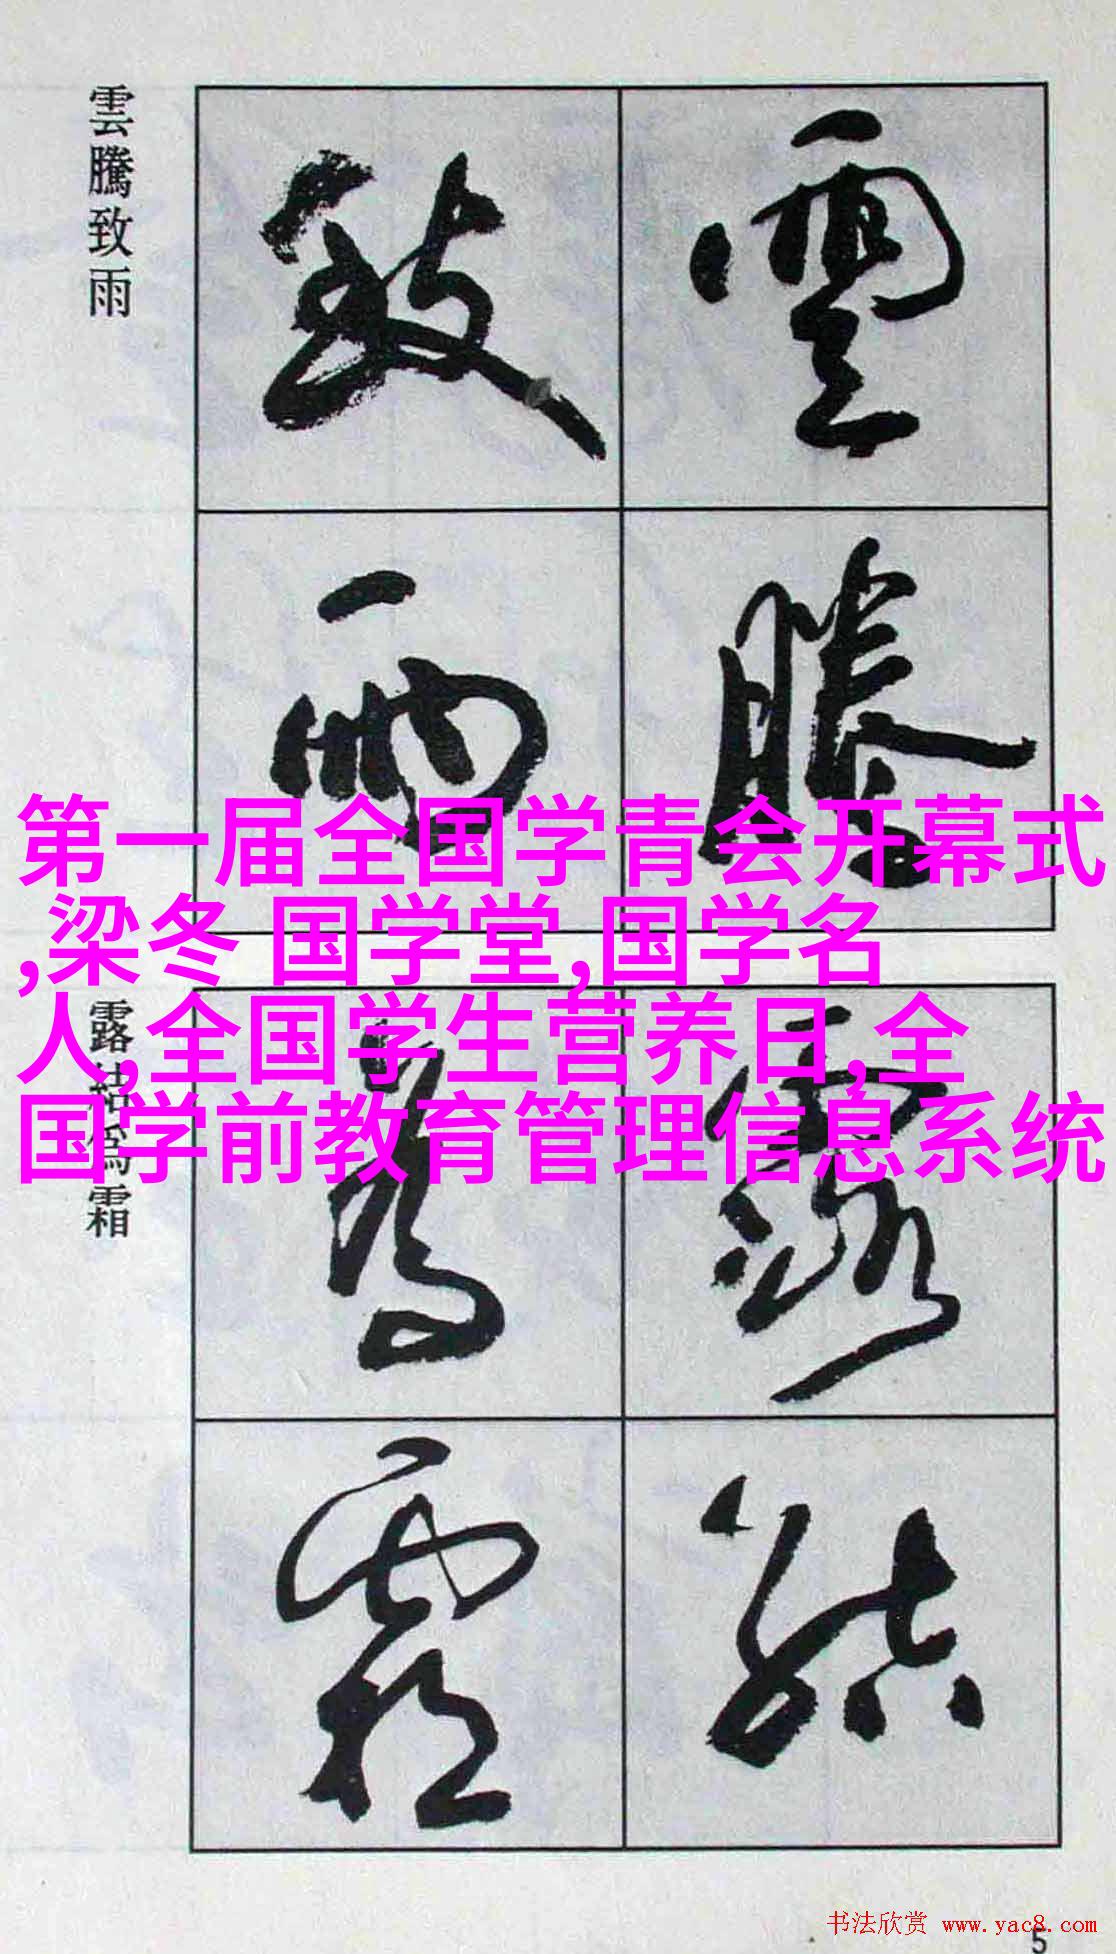 雲騰致雨
雲
騰
致
雨
第一届全国学青会开幕式
,梁冬 国学堂,国学名
人,全国学生营养日,全
国学前教育管理信息系统
露結為霜
露
結
為
霜
书法欣赏 www.yac8.com
5